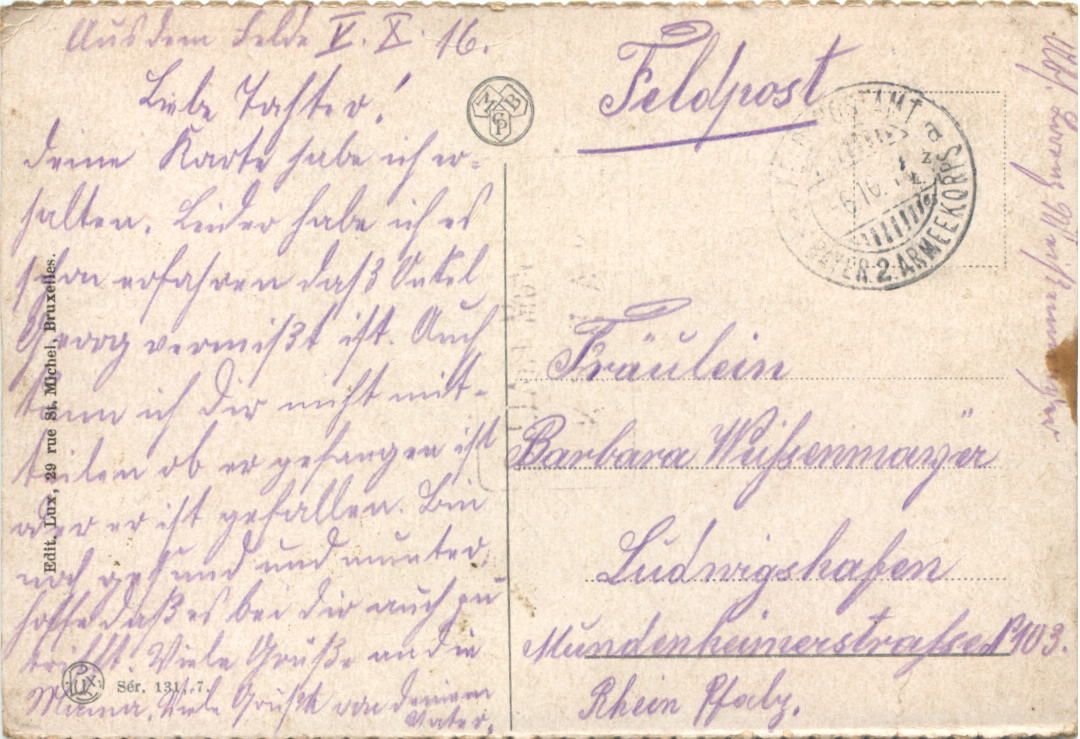 Aus dem Felde V. X. 16.
Liebe Tahter!
deine Karte habe ich er-
halten. Leider habe ich es
schon erfahren daß Onkel
Georg vermißt ist. Auch
kann ich dir nicht mit-
teilen ob er gefangen ist
oder er ist gefallen. Bin
noch gesund und munter
hoffe daß es bei dir auch zu
trifft. Viele Grüße an die
Mama. Viele Grüße von deinem
Vater.
Edit. Lux, 29 rue St. Michel, Bruxelles.
Lux
Sér. 131, 7.
M B
G
P
Feldpost
BAYER. 2. ARMEEKORPS
Fräulein
Barbara Weissenmayer
Ludwigshafen
Mundenheimerstrasse No 103.
Rhein Pfalz.
Abs.